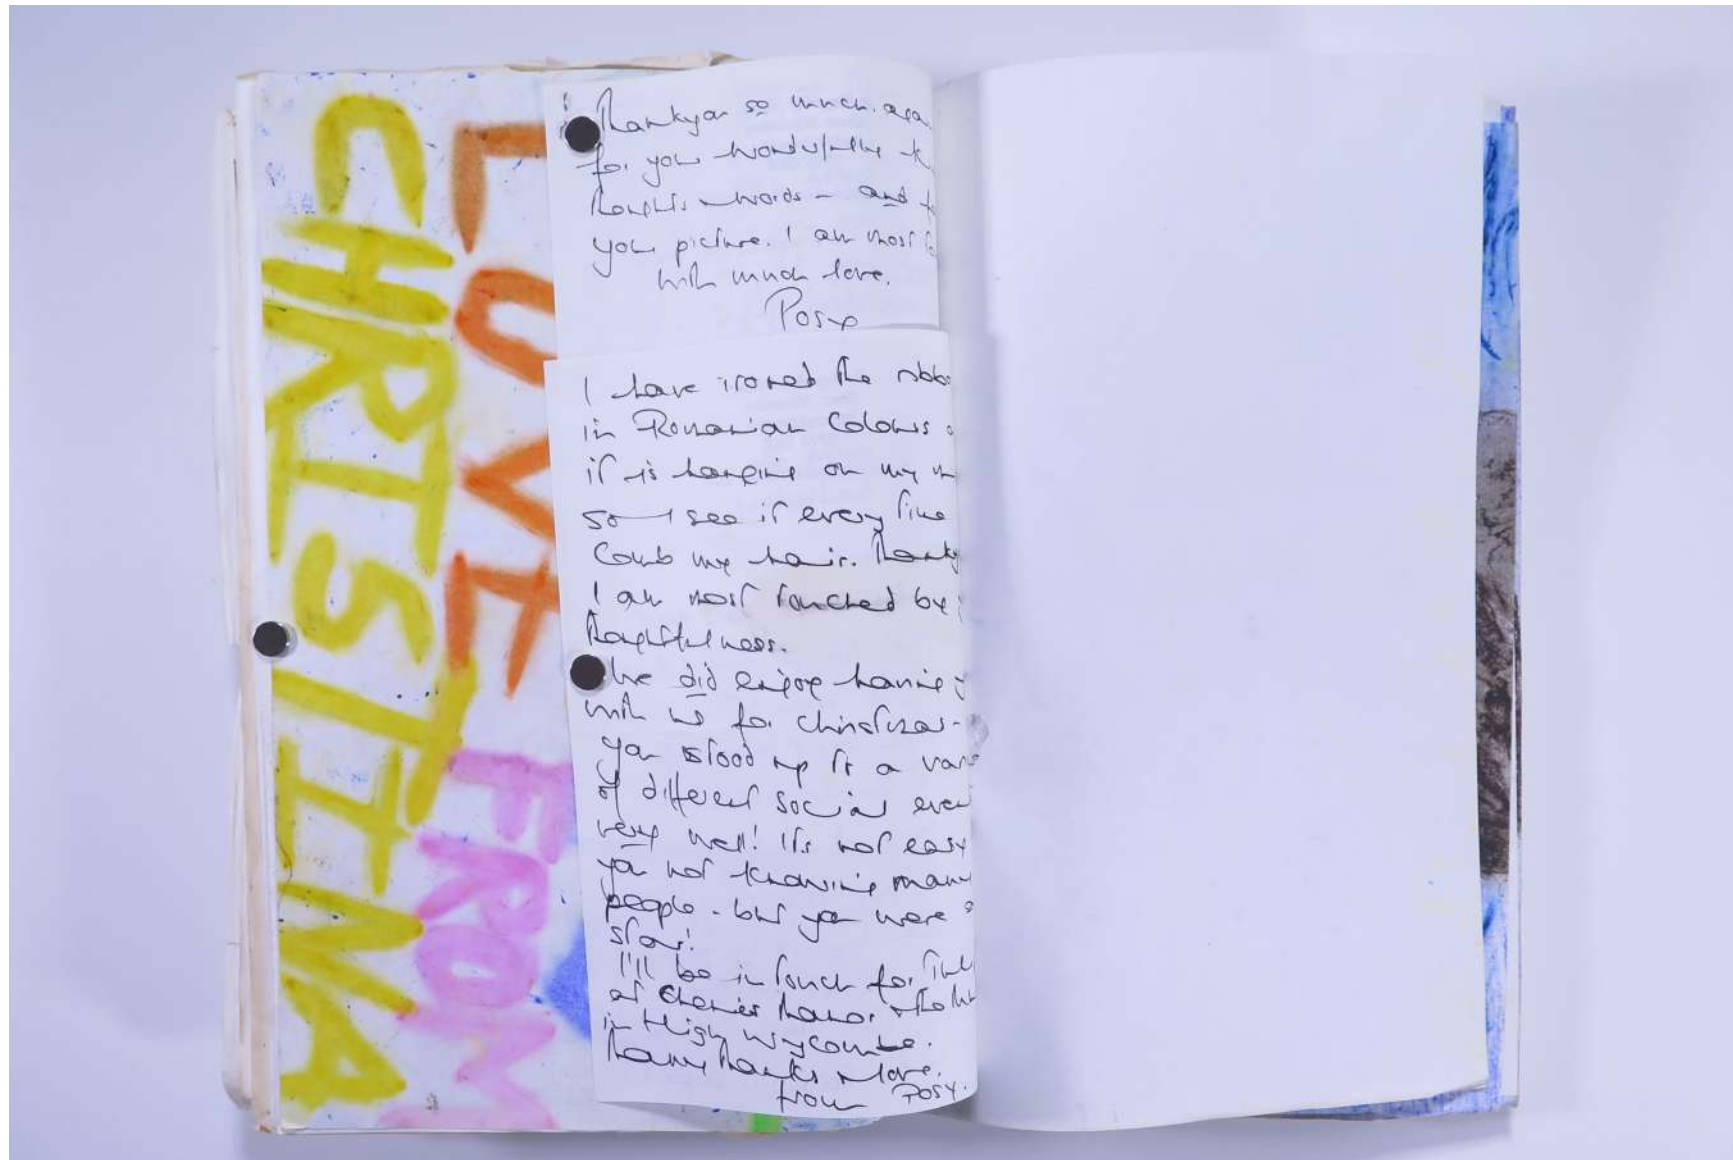 CHRISTINA
LOVE
FROM
Thankyou so much aga
for your wonderfully
thoughts & words – and
your picture. I am most
with much love.
Posy
I have ironed the ribbo
in Romanian Colours
it is hanging on my
so I see it every time
Comb my hair. Thanky
I am most touched by
thoughtfulness.
We did enjoy having
with us for christmas –
you stood up to a vari
of different social even
very well! It's not easy
you not knowing many
people – but you were a
star!
I'll be in touch for
at Chenies Manor &
in High Wycombe.
Many thanks & love.
from Posy.